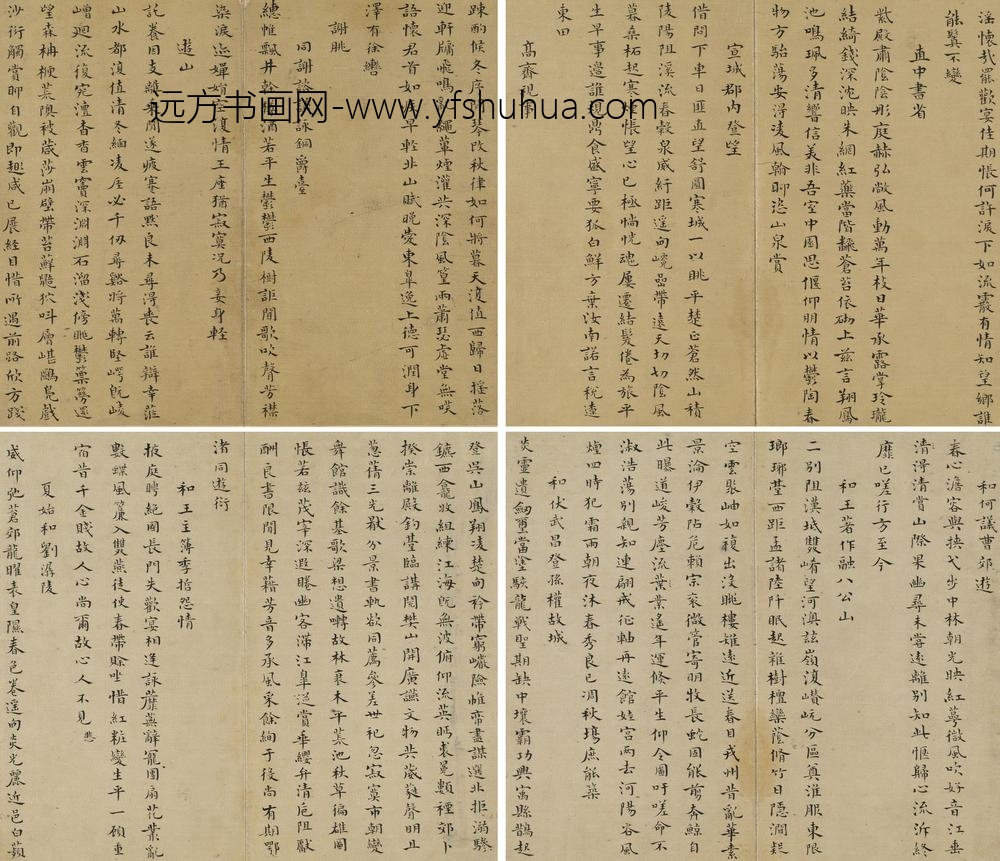 淫懷哉罷歡宴佳期悵何許淚下如流霰有情知望鄉誰
能鬒不變
直中書省
紫殿肅陰陰彤庭赫弘敞風動萬年枝日華承露掌玲瓏
結綺錢深沈映朱網紅藥當階翻蒼苔依砌上茲言翔鳳
池鳴珮多清響信美非吾室中園思偃仰朋情以鬱陶春
物方駘蕩安得凌風翰聊恣山泉賞
宣城郡內登望
借問下車日匪直望舒圓寒城一以眺平楚正蒼然山積
陵陽阻溪流春穀泉威紆距遙甸巉嵒帶遠天切切陰風
暮桑柘起寒煙悵望心已極惝怳魂屢遷結髮倦為旅平
生早事邊誰規鼎食盛寧要狐白鮮方棄汝南諾言稅遼
東田
高齋視事
疎酌候冬序琴改秋律如何將暮天復值西歸日搖落
迎軒牖飛鳴亂繩蓽煙灌共深陰風篁兩蕭瑟虛堂無笑
語懷君首如疾早輕北山賦晚愛東皋逸上德可潤身下
澤有徐轡
謝朓
同謝諮議詠銅爵臺
繐帷飄井幹樽酒若平生鬱鬱西陵樹詎聞歌吹聲芳襟
染淚迹嬋媛空復情玉座猶寂寞況乃妾身輕
遊山
託養因支離乘閒遂疲蹇語默良未尋得喪云誰辯幸蒞
山水都復值清冬緬凌厓必千仞尋谿將萬轉堅崿既崚
嶒迴流復宛澶杳杳雲竇深淵淵石溜淺傍眺鬱篻簩還
望森柟楩荒隩被葴莎崩壁帶苔蘚鼯狖叫層嵁鷗鳧戲
沙衍觸賞聊自觀即趣咸已展經目惜所遇前路欣方踐
远方书画网-www.yfshuhua.com
和何議曹郊遊
春心澹容與挾弋步中林朝光映紅萼微風吹好音江垂
清得清賞山際果幽尋未嘗遠離別知此愜歸心流泝終
靡已嗟行方至今
和王著作融八公山
二別阻漢坻雙崤望河澳茲嶺復巑岏分區奠淮服東限
瑯琊臺西距孟諸陸阡眠起雜樹檀欒蔭脩竹日隱澗疑
空雲聚岫如複出沒眺樓雉遠近送春目戎州昔亂華素
景淪伊穀阽危賴宗袞微管寄明牧長蛇固能翦奔鯨自
此曝道峻芳塵流業遙年運倏平生仰令圖吁嗟命不
淑浩蕩別親知連翩戒征軸再遠館娃宮兩去河陽谷風
煙四時犯霜雨朝夜沐春秀良已凋秋場庶能築
和伏武昌登孫權故城
炎靈遺劒璽當塗駭龍戰聖期缺中壤霸功興寓縣鵲起
登吳山鳳翔凌楚甸衿帶窮巖險帷帟盡謀選北拒溺驂
鑣西龕收組練江海既無波俯仰流英眄裘冕類禋郊卜
揆崇離殿釣臺臨講閱樊山開廣讌文物共葳蕤聲明且
蔥蒨三光厭分景書軌欲同薦參差世祀忽寂寞市朝變
舞館識餘基歌梁想遺囀故林衰木平荒池秋草徧雄圖
悵若茲茂宰深遐睠幽客滯江皐從賞乖纓弁清巵阻獻
酬良書限聞見幸藉芳音多承風采餘絢于役尚有期鄂
渚同遊衍
和王主簿季哲怨情
掖庭聘絕國長門失歡宴相逢詠蘼蕪辭寵團扇花叢亂
數蝶風簾入雙燕徒使春帶賒坐惜紅粧變生平一顧重
宿昔千金賤故人心尚爾故心人不見
夏始和劉潺陵
威仰弛蒼郊龍曜表皇隰春色卷遙甸炎光麗近邑白蘋